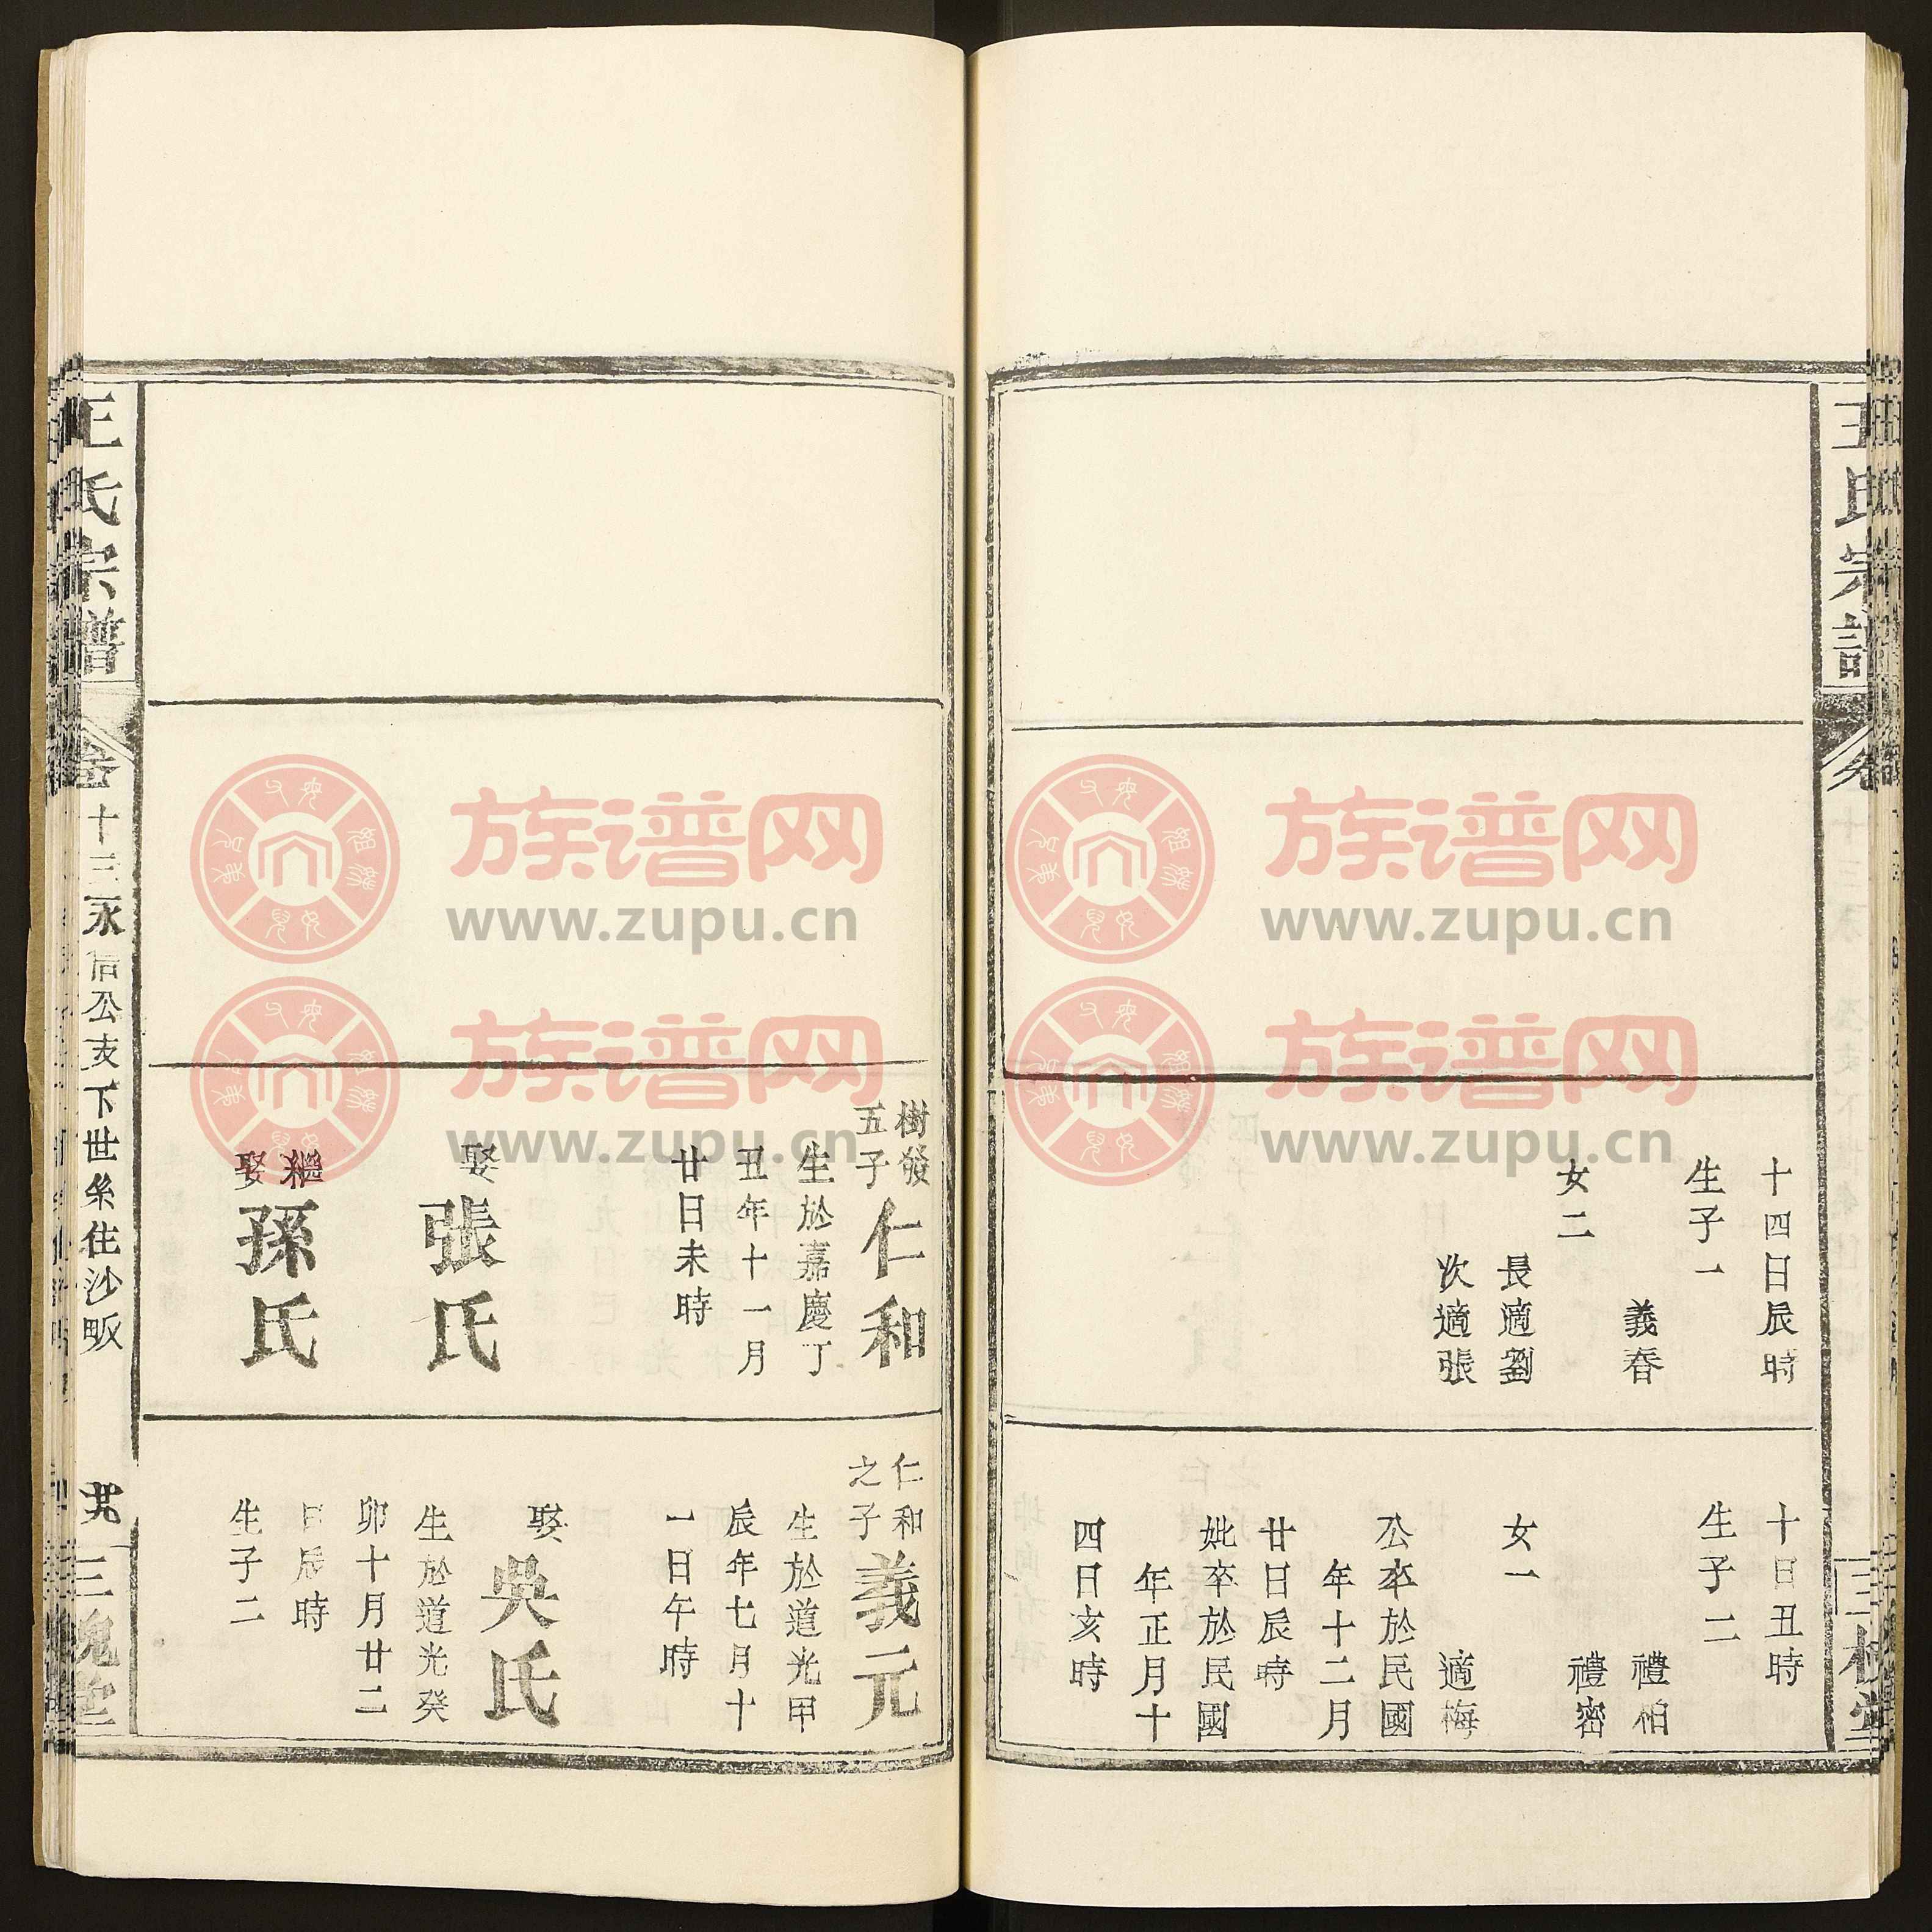 王氏宗譜
卷
三槐堂
十四日辰時
生子一
義春
女二
長適劉
次適張
十日丑時
生子二
禮柏
禮密
女一
適梅
公卒於民國
年十二月
廿日辰時
妣卒於民國
年正月十
四日亥時
樹發
五子
仁和
生於嘉慶丁
丑年十一月
廿日未時
娶
張氏
繼
娶
孫氏
仁和
之子
義元
生於道光甲
辰年七月十
一日午時
娶
吳氏
生於道光癸
卯十月廿二
日辰時
生子二
王氏宗譜
卷十三永信公支下世系住沙畈
三槐堂
族谱网
www.zupu.cn
族谱网
www.zupu.cn
族谱网
www.zupu.cn
族谱网
www.zupu.cn